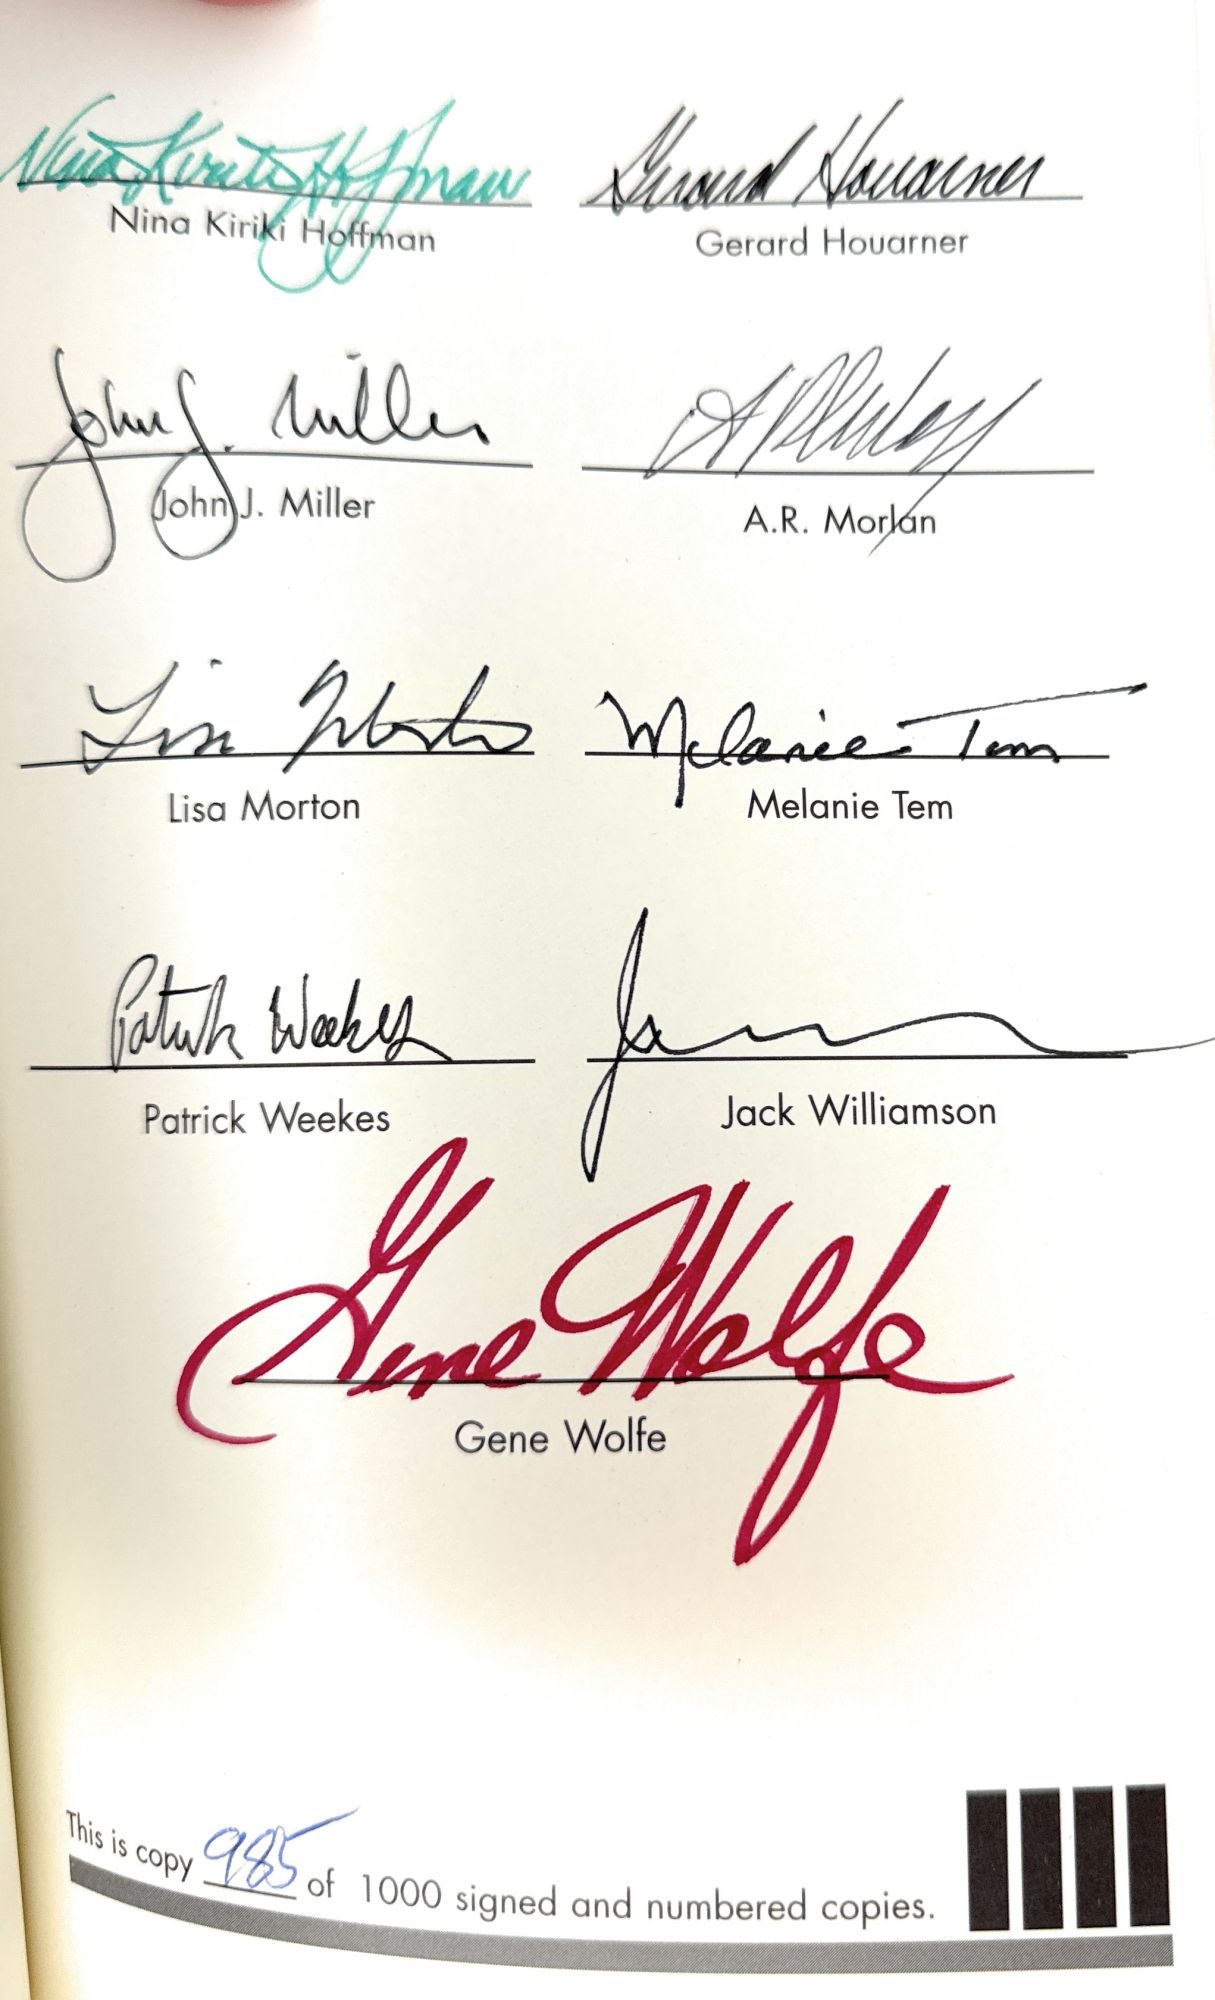 Nina Kiriki Hoffman Gerard Houarner
Nina Kiriki Hoffman Gerard Houarner
John J. Miller A R Morlan
John J. Miller A.R. Morlan
Lisa Morton Melanie Tem
Lisa Morton Melanie Tem
Patrick Weekes
Patrick Weekes Jack Williamson
Gene Wolfe
Gene Wolfe
This is copy 985 of 1000 signed and numbered copies.